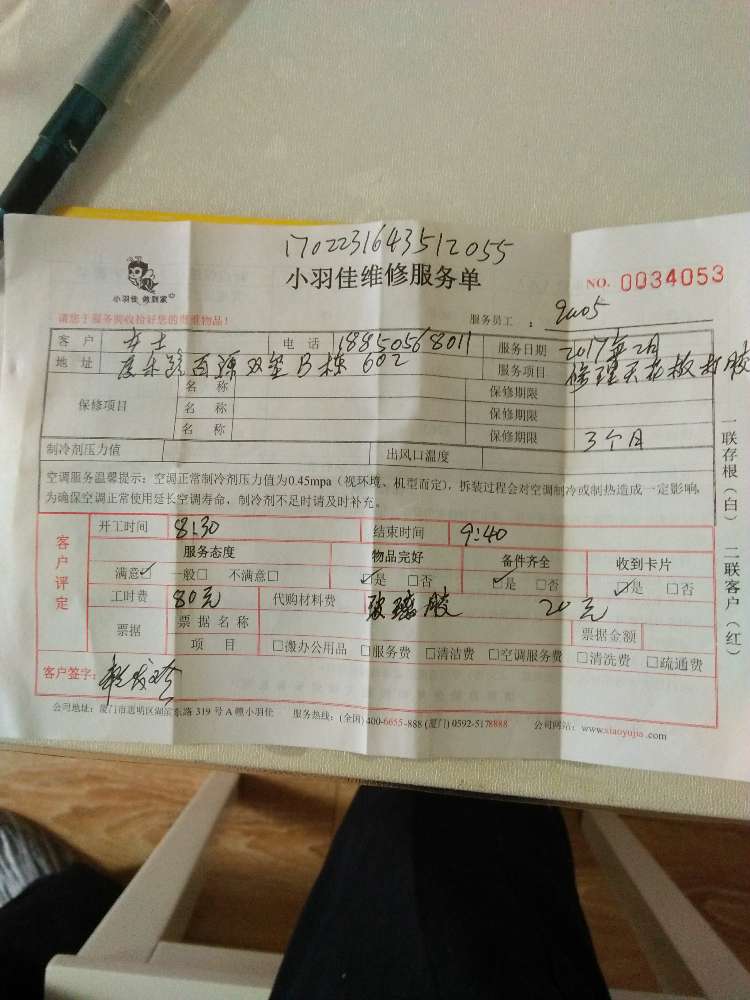 170223164351 2055
小羽佳维修服务单
小羽佳 做到家
NO. 0034053
请您于服务前收拾好您的贵重物品!
服务员工:
客户 女士 电话 18850568011 服务日期 2017年2月
地址 B栋602 服务项目 修理天花板打胶
保修项目 名称 保修期限
名称 保修期限
名称 保修期限 3个月
制冷剂压力值 出风口温度
空调服务温馨提示:空调正常制冷剂压力值为0.45mpa(视环境、机型而定),拆装过程会对空调制冷或制热造成一定影响,
为确保空调正常使用延长空调寿命,制冷剂不足时请及时补充。
客户评定
开工时间 8:30 结束时间 9:40
服务态度 物品完好 备件齐全 收到卡片
满意☑ 一般□ 不满意□ ☑是 □否 ☑是 □否 ☑是 □否
工时费 80元 代购材料费 玻璃胶 20元
票据 票据名称 票据金额
项目 □搬办公用品 □服务费 □清洁费 □空调服务费 □清洗费 □疏通费
客户签字:
公司地址:厦门市思明区湖滨东路319号A幢小羽佳 服务热线:(全国)400-6655-888 (厦门)0592-5178888 公司网站:www.xiaoyujia.com
一联存根(白) 二联客户(红)